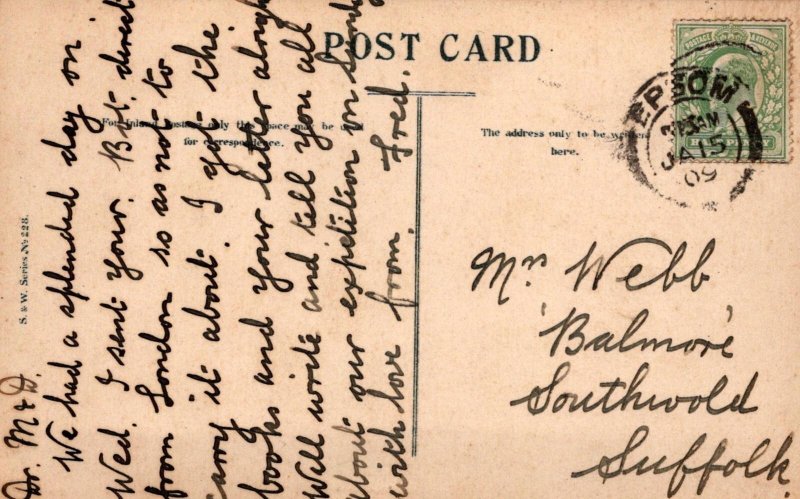 POST CARD
For Inland Postage only this space may be used
for correspondence.
The address only to be written
here.
S. & W. Series No 228.
EPSOM
JA 15
09
Dr. M & D.
We had a splended day on
Wed. I sent your. Bot. direct
from London so as not to
carry it about. I got the
books and your letter alright
Will write and tell you all
about our expetition on Sunday
with love from, Fred.
Mrs Webb
'Balmore'
Southwold
Suffolk